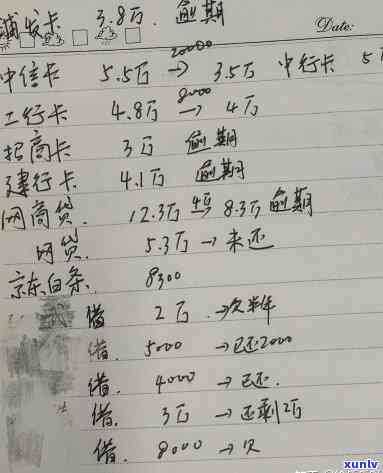 浦发卡 3.8万 逾期
Date:
20000
中信卡 5.5万 → 3.5万 中行卡 5
8000
工行卡 4.8万 → 4万
招商卡 3万 逾期
建行卡 4.1万 逾期
网商贷. 12.3万 → 8.3万 逾期
网贷. 5.3万 → 未还
京东白条. 8300
借 2万 → 欠半年
借. 5000 → 已还2000
借. 4000 → 已还.
借. 3万 → 还剩2万
借. 8000 → 欠
xunlv